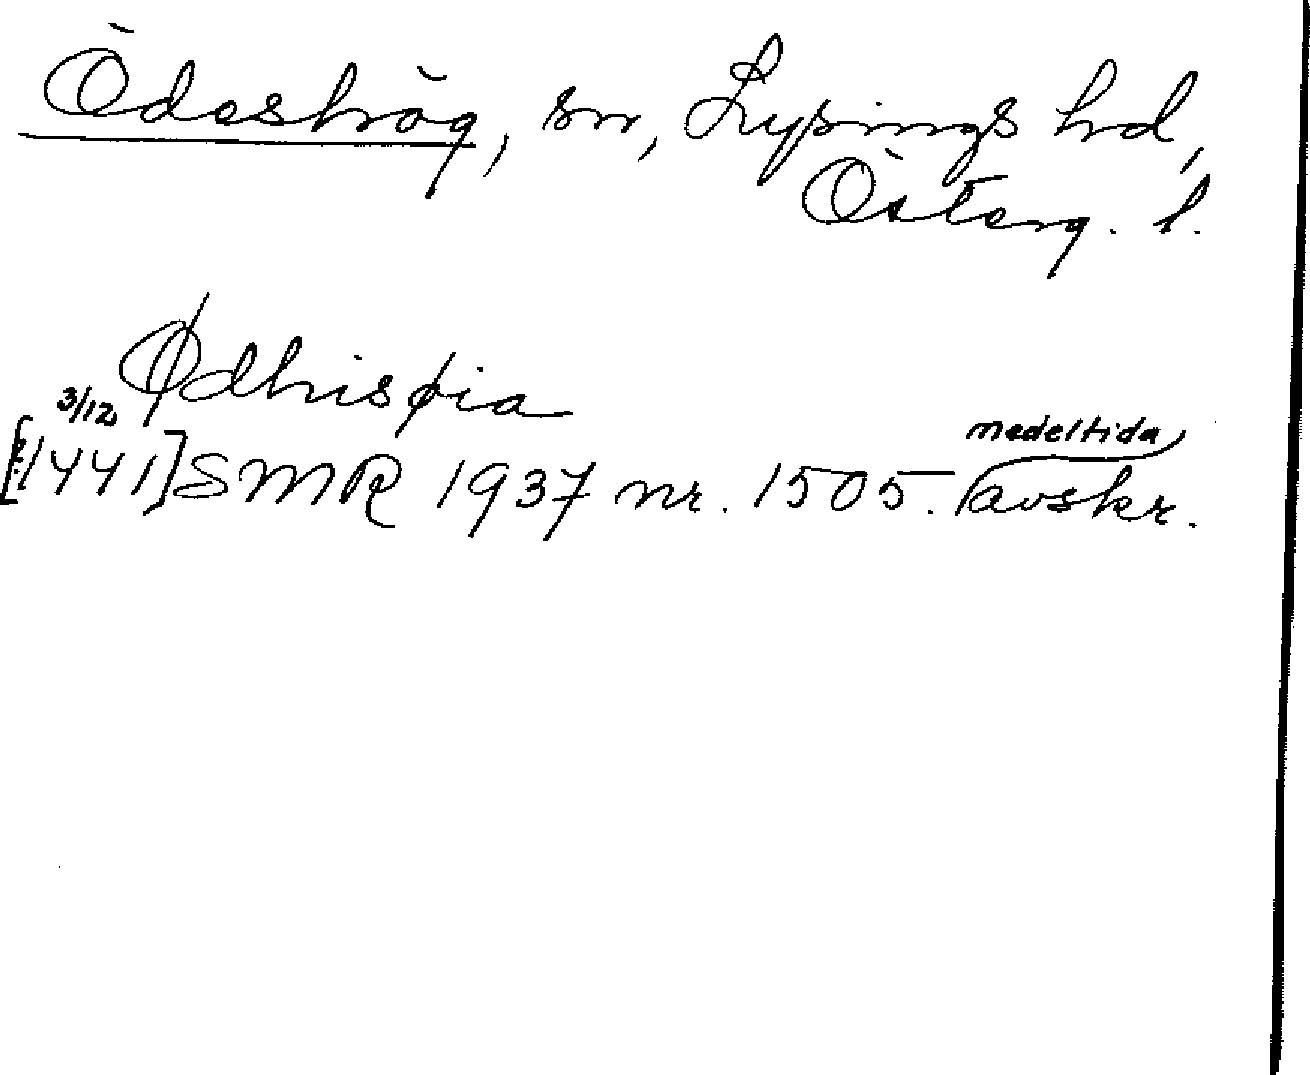 Ödeshög, sn, Lysings hd,
Österg. l.
Ødhisøia
3/12
medeltida
[1441] SMR 1937 nr. 1505. avskr.